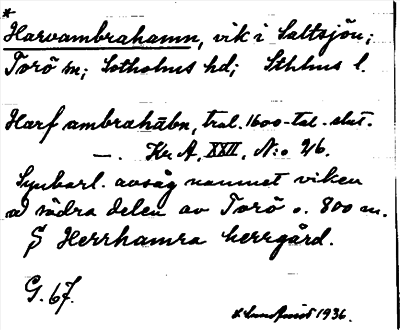 *
Harvambrahamn, vik i Saltsjön;
Torö sn; Sotholms hd; Sthlms l.
Harf ambrahābn, tral. 1600-tal. slut.
—. Kr. A, XXII, N:o 2/6.
Synbarl. avsåg namnet viken
å södra delen av Torö o. 800 m.
S Herrhamra herrgård.
G. 67.
1936.